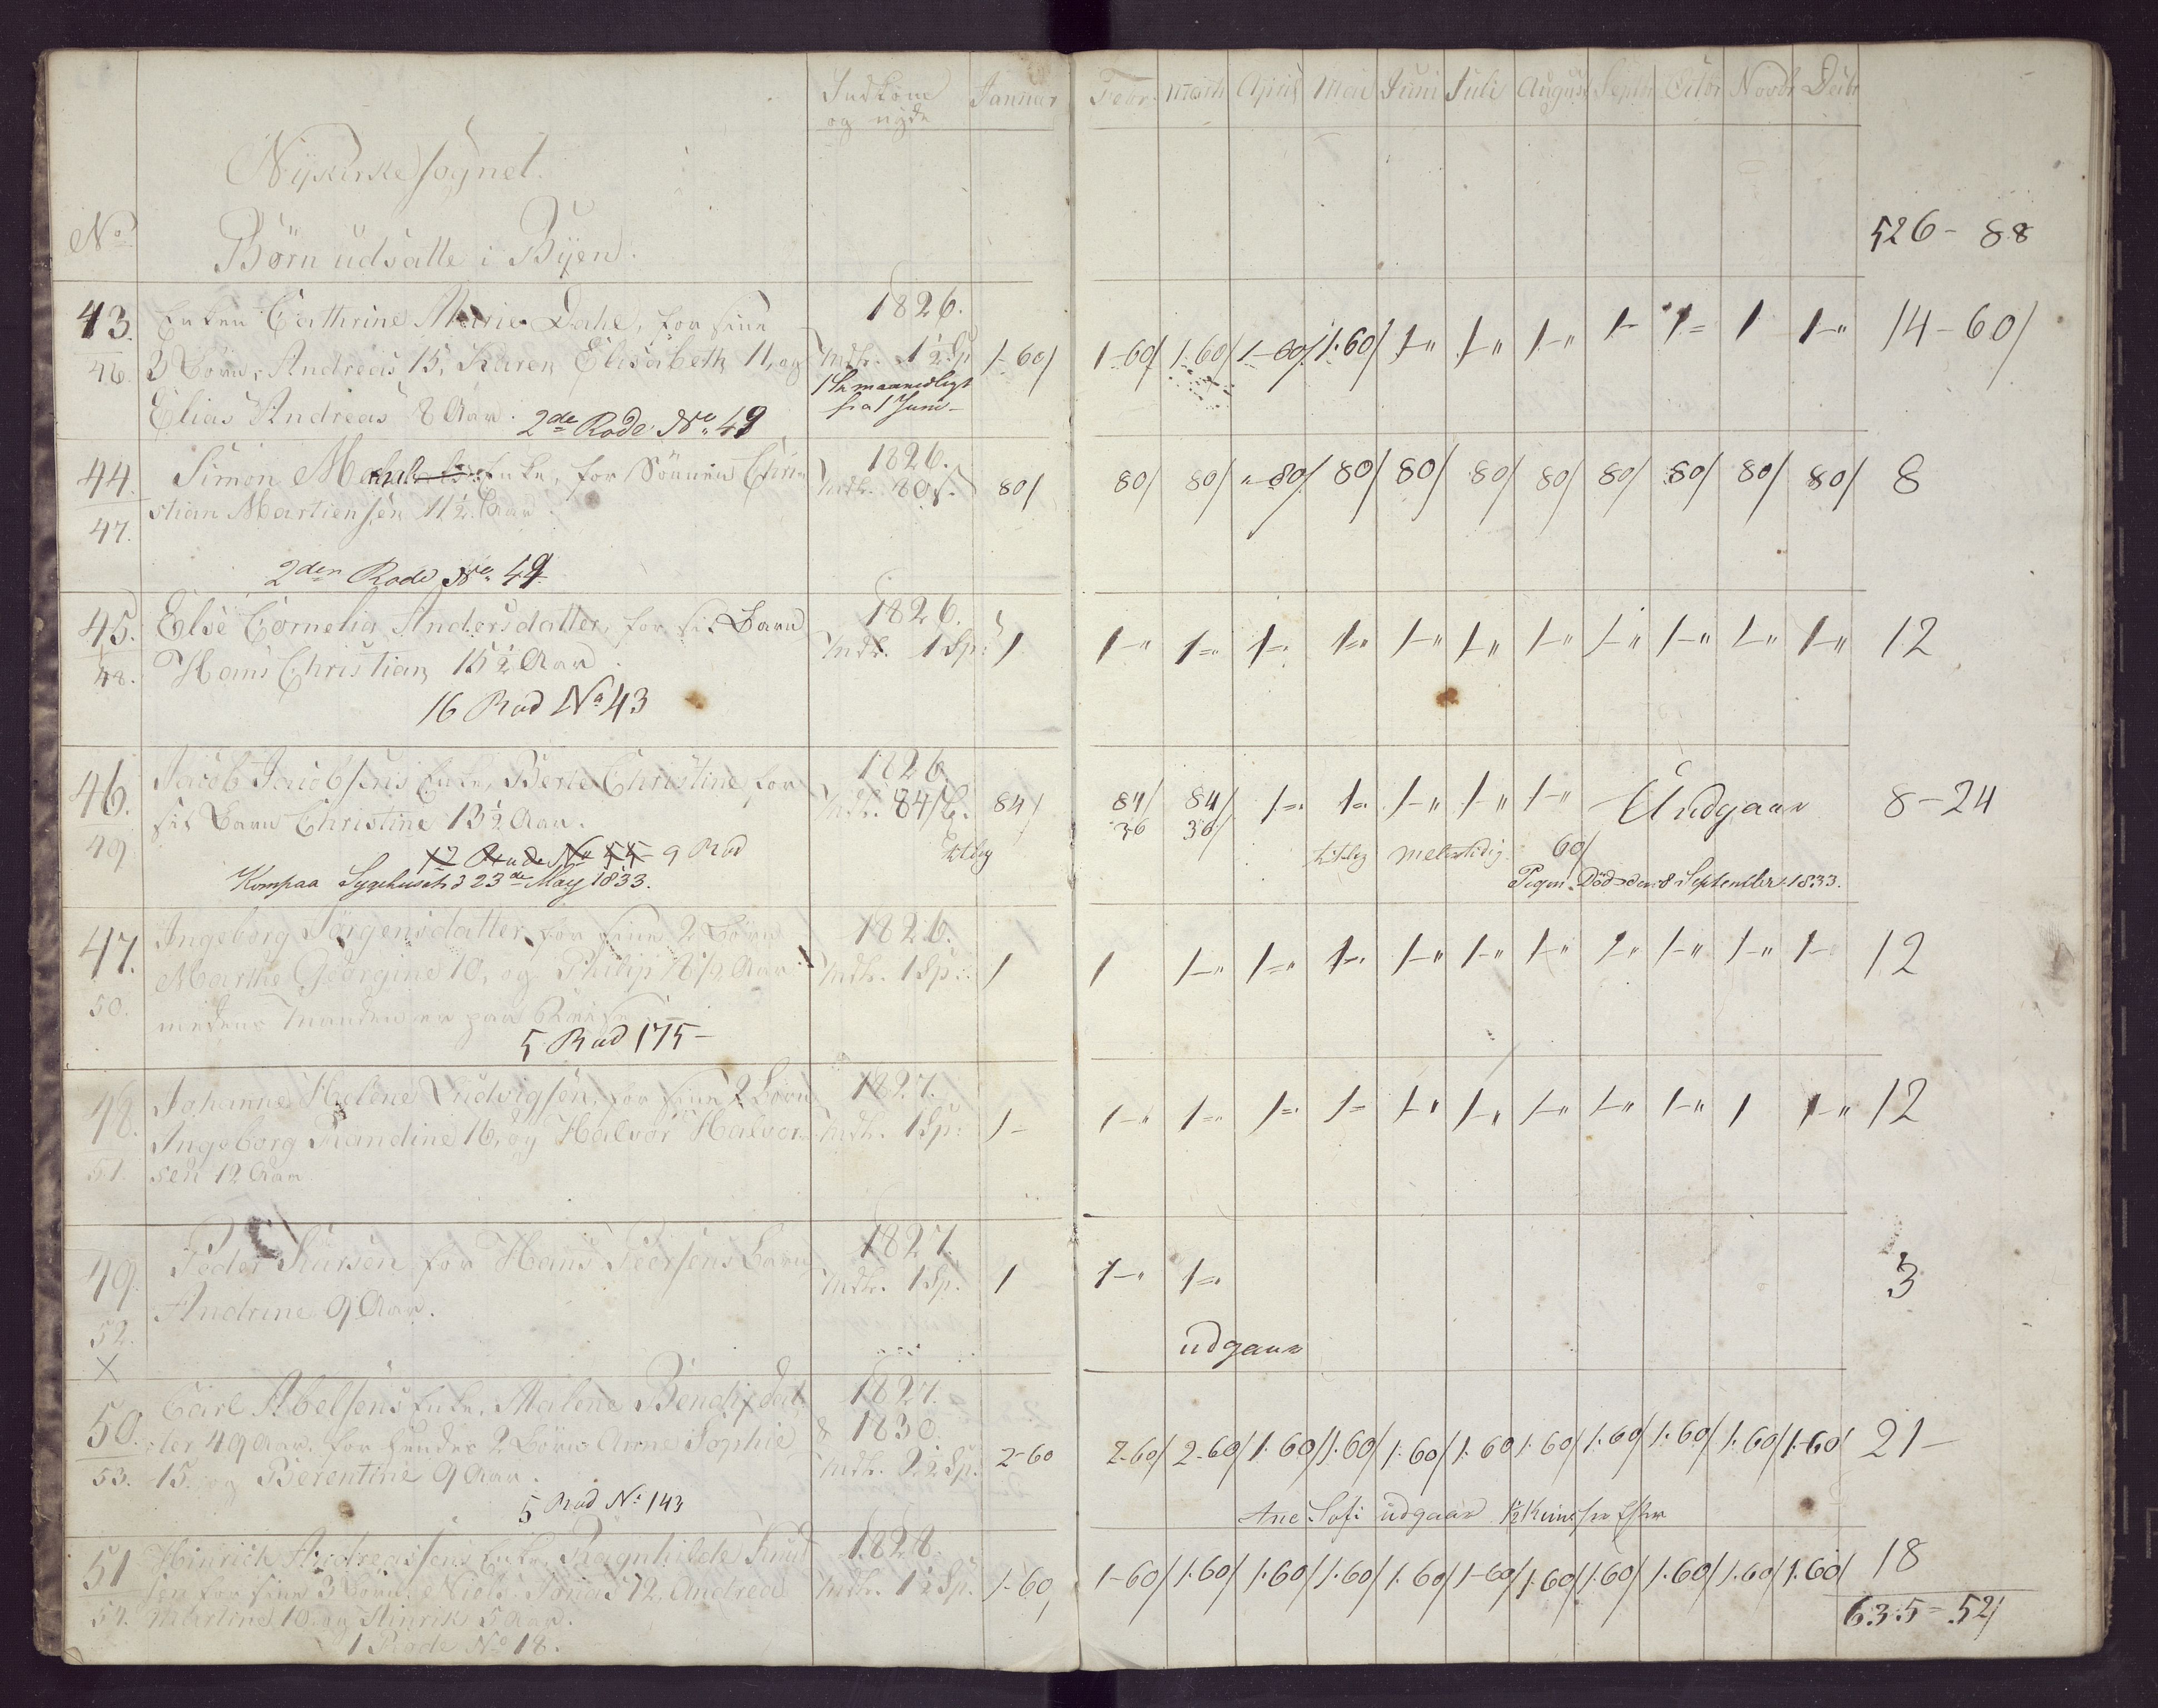 Indkom og nyde Januar Febr. Marti April Mai Juni Juli August Septbr Octbr Novbr Decbr
Nykirkesognet.
No Børn udsatte i Byen. 526 - 88
43. Enken Cathrine Marie Dahl, for sine 1826. 1-60/ 1-60/ 1.60/ 1-60/ 1.60/ 1-" 1-" 1-" 1- 1= 1 1-" 14-60/
46. 3 Børn, Andreas 15, Karen Elisabeth 11, og Mdl. 1½ Sp
Elias Andreas 8 Aar. 1 Sp maanedligt fra 1 Juni
2de Rode No 49
44. Simon Enke, for Sønnen Chri- 1826. 80/ 80/ 80/ "-80/ 80/ 80/ 80/ 80/ 80/ 80/ 80/ 80/ 8
47. stian Martiensen 11½ Aar. Mdl. 80 s.
2den Rode No 49
45. Else Cornelia Andersdatter, for sit Barn 1826. 1 1-" 1-" 1- 1-" 1-" 1-" 1-" 1-" 1-" 1-" 1-" 12
48. Hans Christian 15½ Aar. Mdl. 1 Sp:
16 Rod No 43
46. Jacob Jacobsens Enke, Berte Christine for 1826 84/ 84/ 84/ 1-" 1-" 1-" 1-" 1-" Uudgaar 8-24
49 sit Barn Christine 13½ Aar. Mdl. 84 36 36/
12 Rode No 44 9 Rod 60/
Kom paa Sygehuset d 23de May 1833. Pigen Død den 8 September 1833.
47. Ingeborg Jørgensdatter, for sine 2 Børn 1826. 1 1 1-" 1-" 1-" 1-" 1-" 1-" 1-" 1-" 1-" 1- 12
Marthe Georgine 10, og Philip Aar Mdl. 1 Sp:
50. medens Manden er paa Reise
5 Rod 175-
48. Johanne Helene Ludvigsen, for sine 2 Børn 1827. 1- 1-" 1-" 1-" 1- 1-" 1-" 1-" 1-" 1-" 1 1-" 12
Ingeborg Randine 16, og Halvor Halvor- Mdl. 1 Sp:
51. sen 12 Aar
49. Peder Larsen for Hans Peersens Barn 1827. 1 1-" 1-" 3
Andrine 9 Aar. Mdl. 1 Sp.
52.
X udgaar
50. Carl Abelsens Enke, Malene Bendixdat- 1827. 2-60 2-60/ 2-60/ 1.60/ 1.60/ 1.60/ 1.60 1.60/ 1.60/ 1.60/ 1.60/ 1-60/ 21-
ter 49 Aar, for hendes 2 Børn Anne Sophie & 1830.
53. 15. og Berentine 9 Aar. Mdl. 2½ Sp.
5 Rod No 143 Ane Sofi udgaar
51 Hinrich Andreassens Enke, Ragnhilde Knud- 1828. 1-60, 1-60/ 1.60/ 1.60/ 1.60/ 1.60/ 1-60/ 1.60/ 1.60/ 1.60/ 1.60/ 1.60/ 18
sen for sine 3 Børn, Niels Jonas 12, Andrea Mdl. 1½ Sp.
54. Martine 10 og Hinrik 5 Aar. 635-52/
1 Rode No 18.